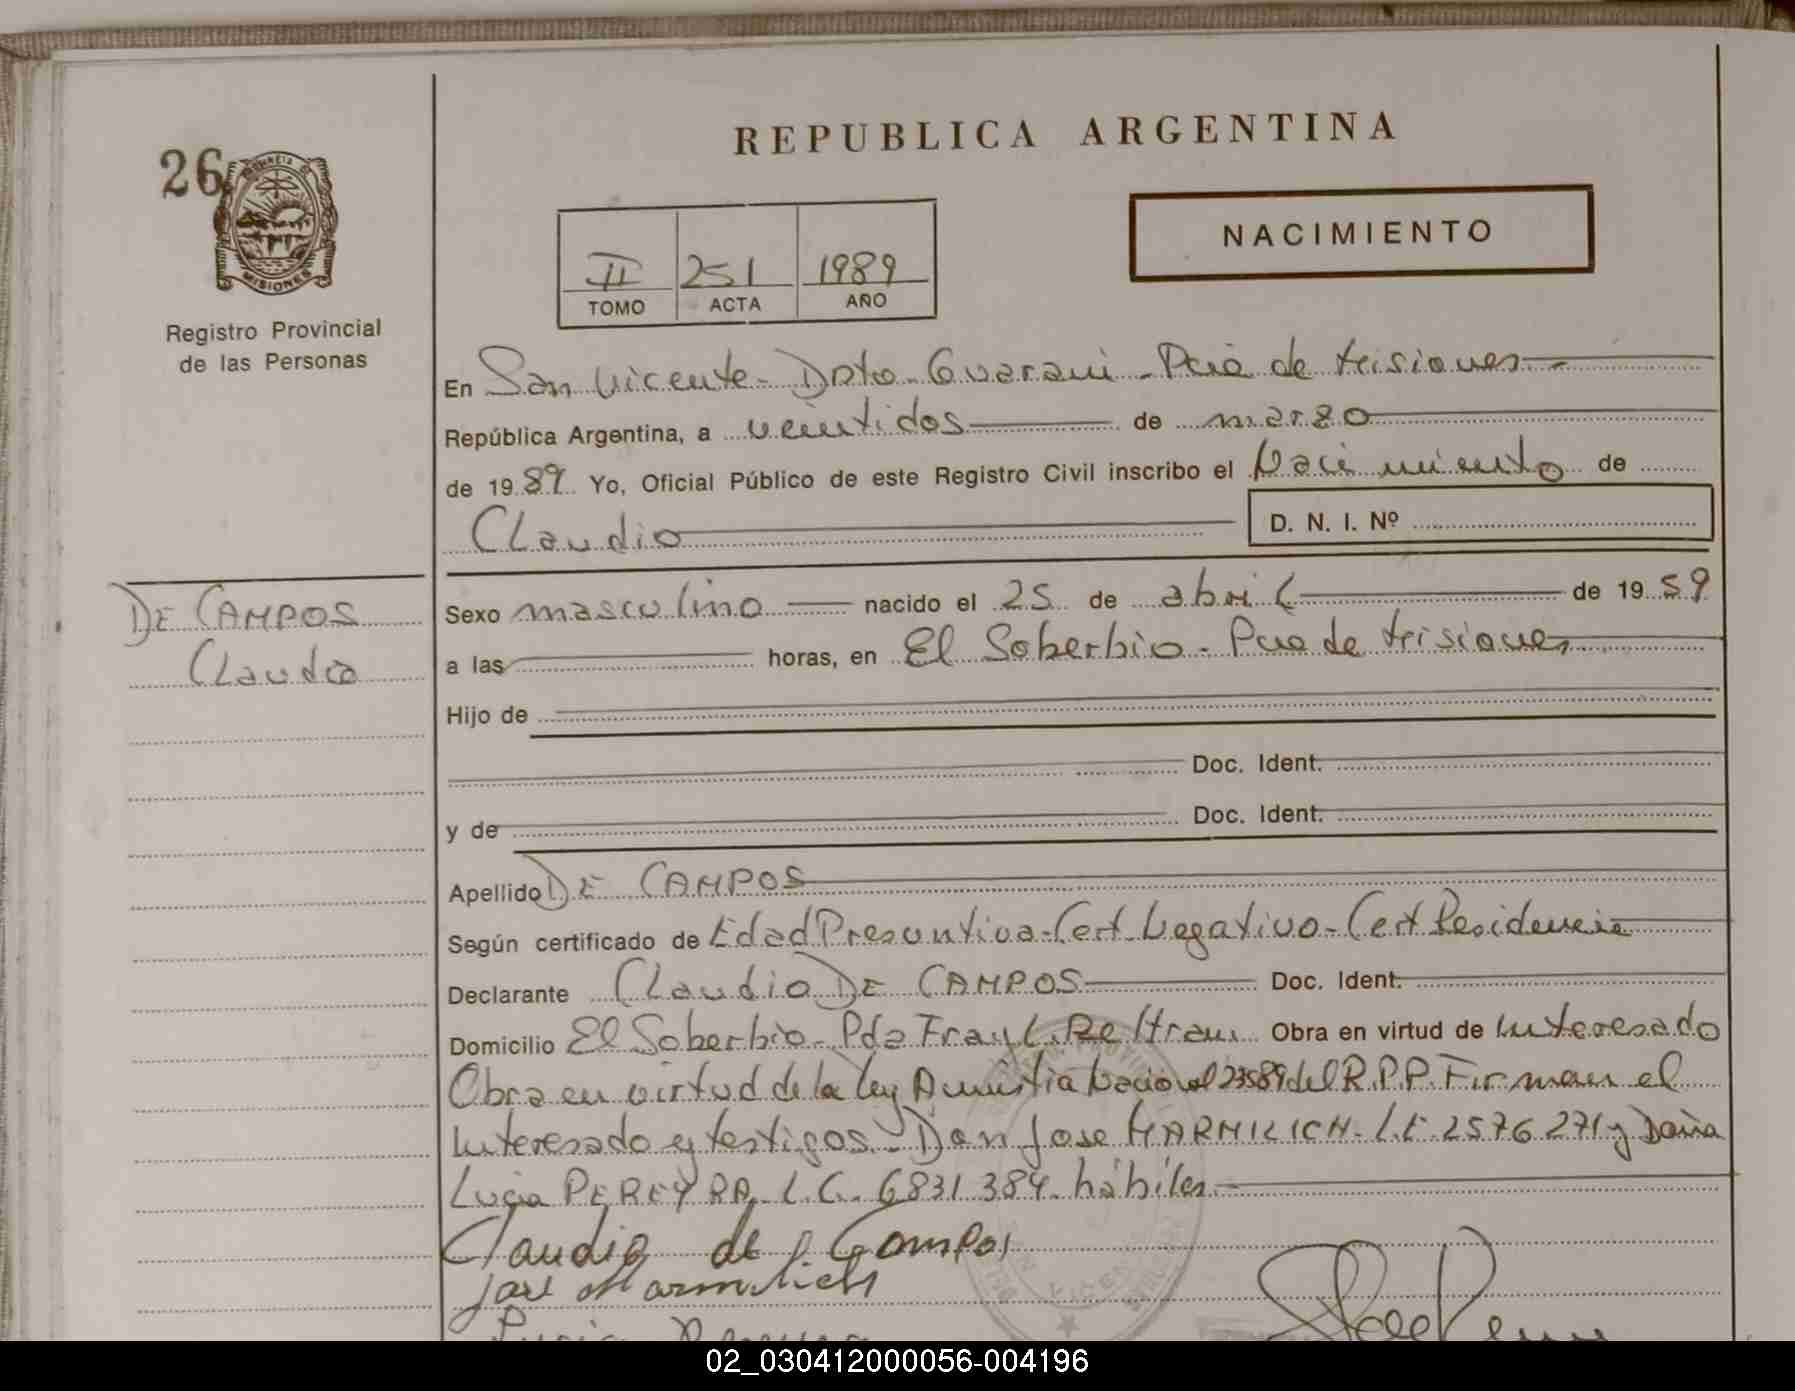 REPUBLICA ARGENTINA
26
PROVINCIA
MISIONES
Registro Provincial
de las Personas
NACIMIENTO
II 251 1989
TOMO ACTA AÑO
En San Vicente - Dpto - Guarani - Pcia de Misiones
República Argentina, a veintidos de marzo
de 1989 Yo, Oficial Público de este Registro Civil inscribo el Nacimiento de
Claudio D. N. I. Nº
DE CAMPOS
Claudio
Sexo masculino nacido el 25 de abril de 1959
a las horas, en El Soberbio - Pcia de Misiones
Hijo de
Doc. Ident.
y de Doc. Ident.
Apellido DE CAMPOS
Según certificado de Edad Presuntiva - Cert Negativo - Cert Residencia
Declarante Claudio DE CAMPOS Doc. Ident.
Domicilio El Soberbio - Pda Fray L. Beltran Obra en virtud de Interesado
Obra en virtud de la ley Amnistia Nacional 23589 del R.P.P. Firman el
Interesado y testigos - Don Jose MARMILICH - L.E. 2576 271 y Doña
Lucia PEREYRA, L.C. 6831 384 - hábiles. -
Claudio de Campos
José Marmilich
02_030412000056-004196